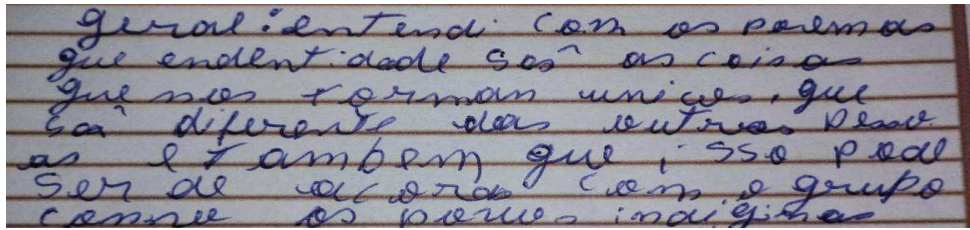 geral: entendi com os poemas
que endentidade saô as coisas
que nos torman unicos, que
saô diferente das outras pesso
as e tambem que isso pode
ser de acordo com o grupo
como os povos indiginas